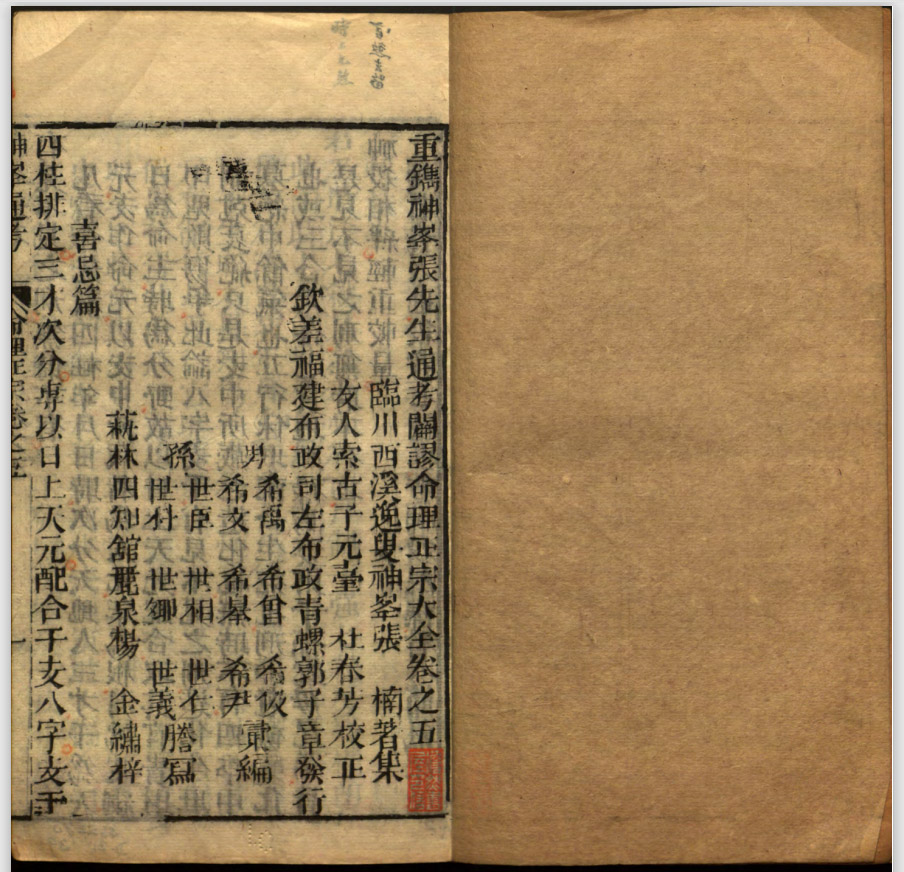 重鐫神峯張先生通考闢謬命理正宗大全卷之五
臨川西溪逸叟神峯張 楠著集
友人索古子元臺 杜春芳校正
欽差福建布政司左布政青螺郭子章發行
男 希禹 希曾 希伋 彙編
希文 希皐 希尹
孫 世臣 世相 世仁 謄寫
世科 世鄉 世義
萟林四知舘麗泉楊 金繡梓
喜忌篇
四柱排定三才次分專以日上天元配合干支八字支干
神峯通考
命理正宗卷之五
一